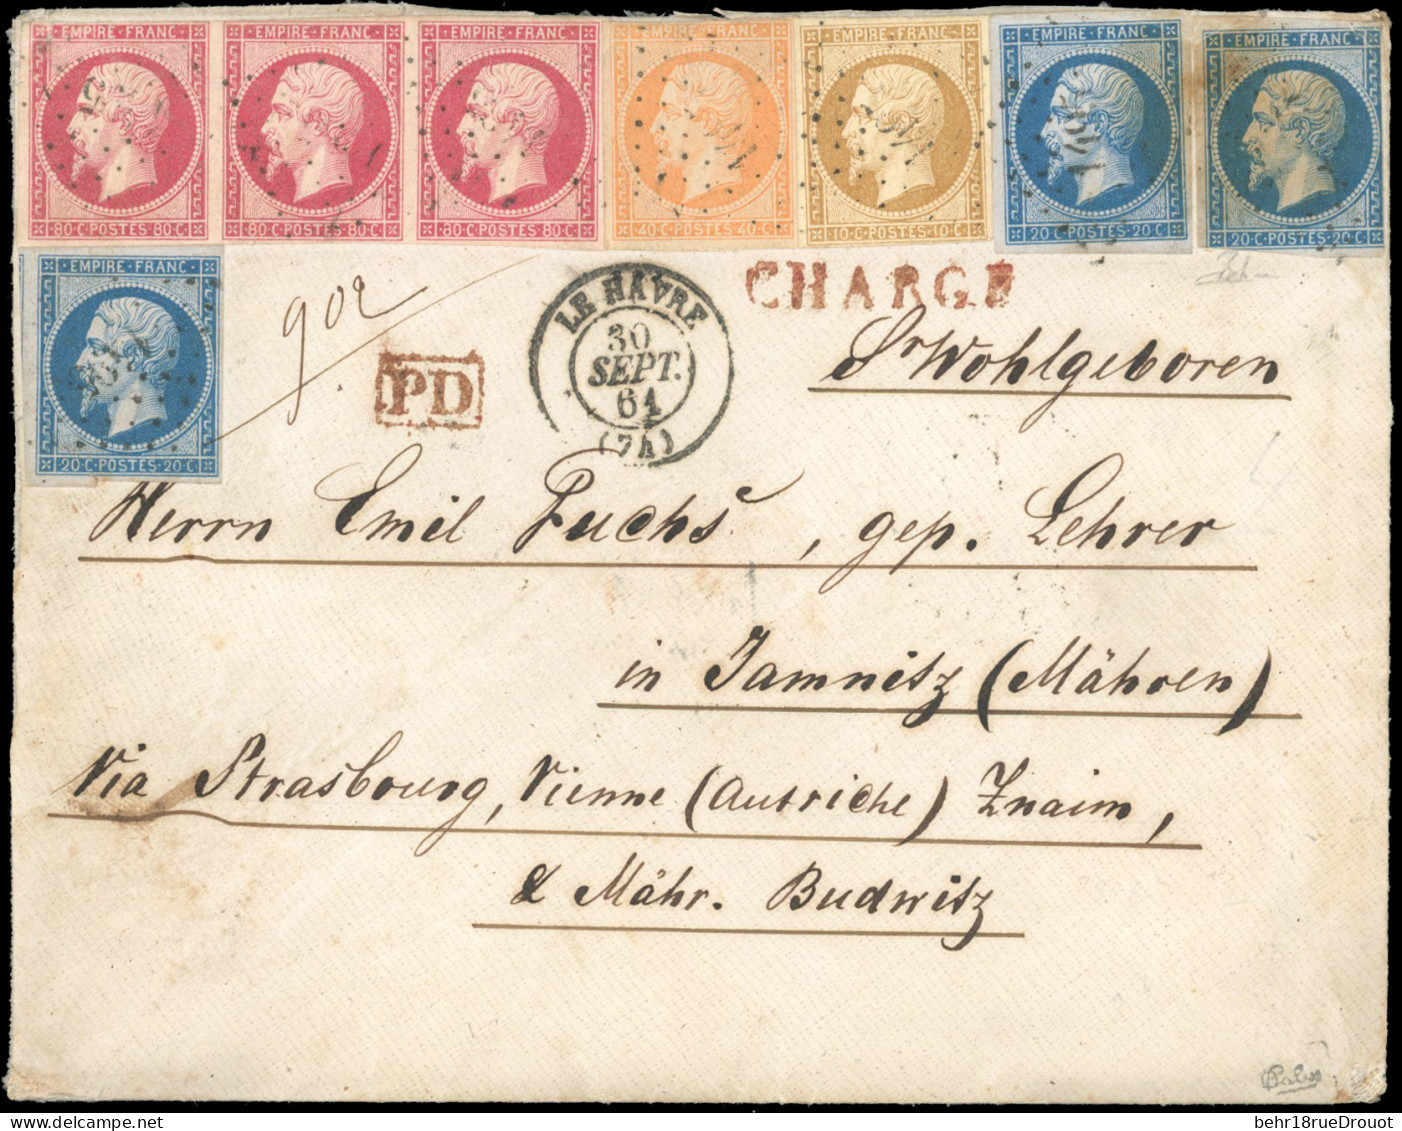 EMPIRE·FRANC EMPIRE·FRANC EMPIRE·FRANC EMPIRE·FRANC EMPIRE·FRANC EMPIRE·FRANC EMPIRE·FRANC
80·C·POSTES·80·C· 80·C·POSTES·80·C· 80·C·POSTES·80·C· 40·C·POSTES·40·C· 10·C·POSTES·10·C· 20·C·POSTES·20·C· 20·C·POSTES·20·C·
EMPIRE·FRANC
20·C·POSTES·20·C·
902
PD
LE HAVRE
30
SEPT.
61
(74)
CHARGÉ
Sr Wohlgeboren
Herrn Emil Fuchs, gep. Lehrer
in Jamnitz (Mähren)
Via Strasbourg, Vienne (Autriche) Znaim,
& Mähr. Budwitz
behr18rueDrouot